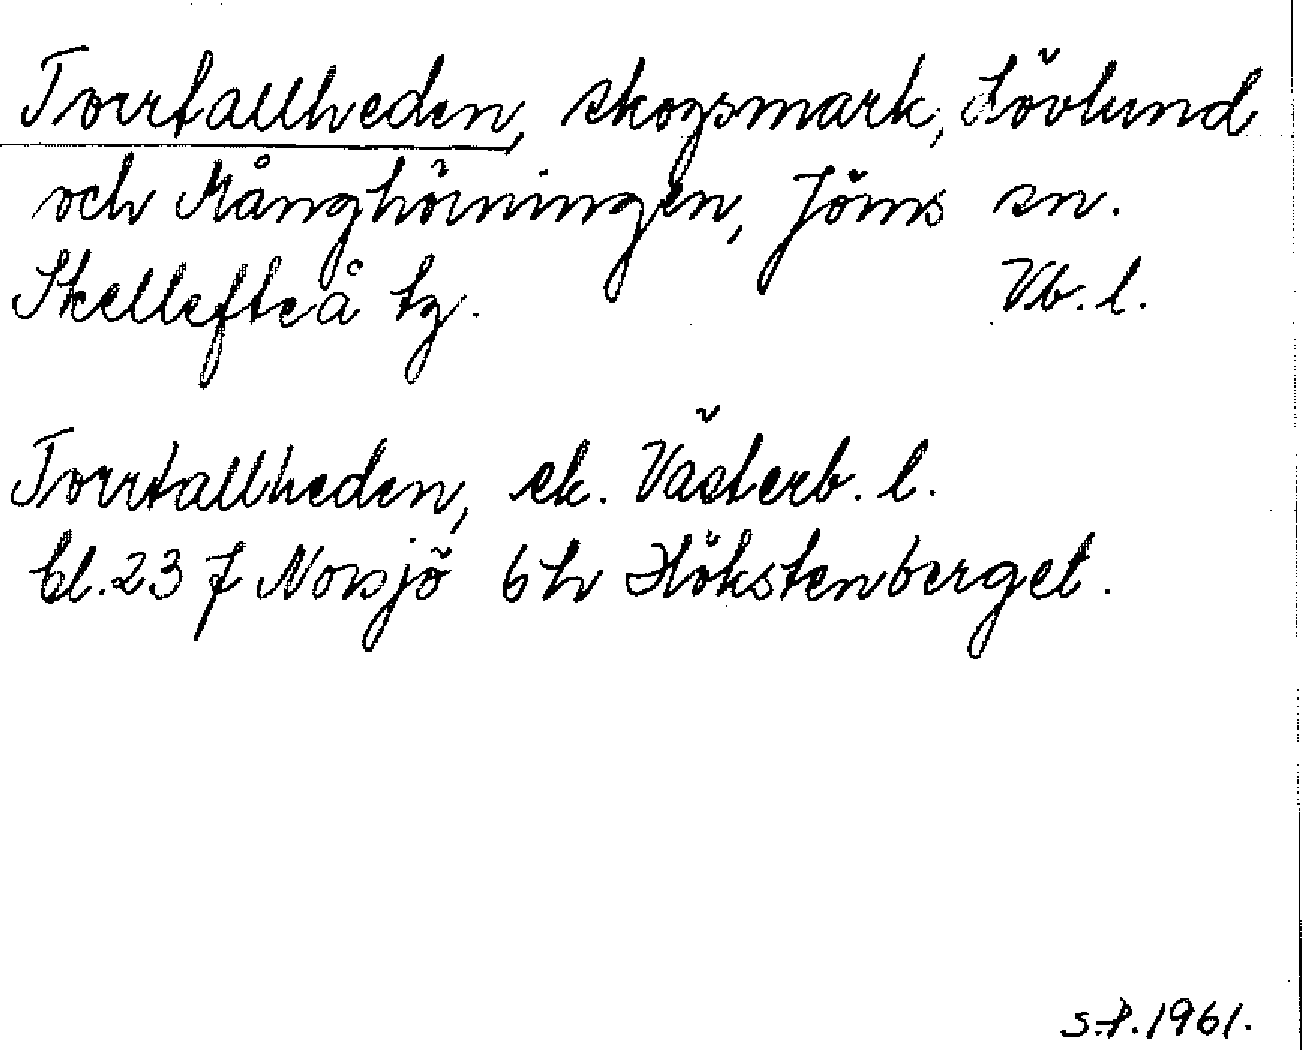 Torrtallheden, skogsmark, Lövlund
och Månghörningen, Jörns sn.
Skellefteå tg. Vb. l.
Torrtallheden, ek. Västerb. l.
bl. 23 J Norsjö 6 h Hökstenberget.
S.P. 1961.